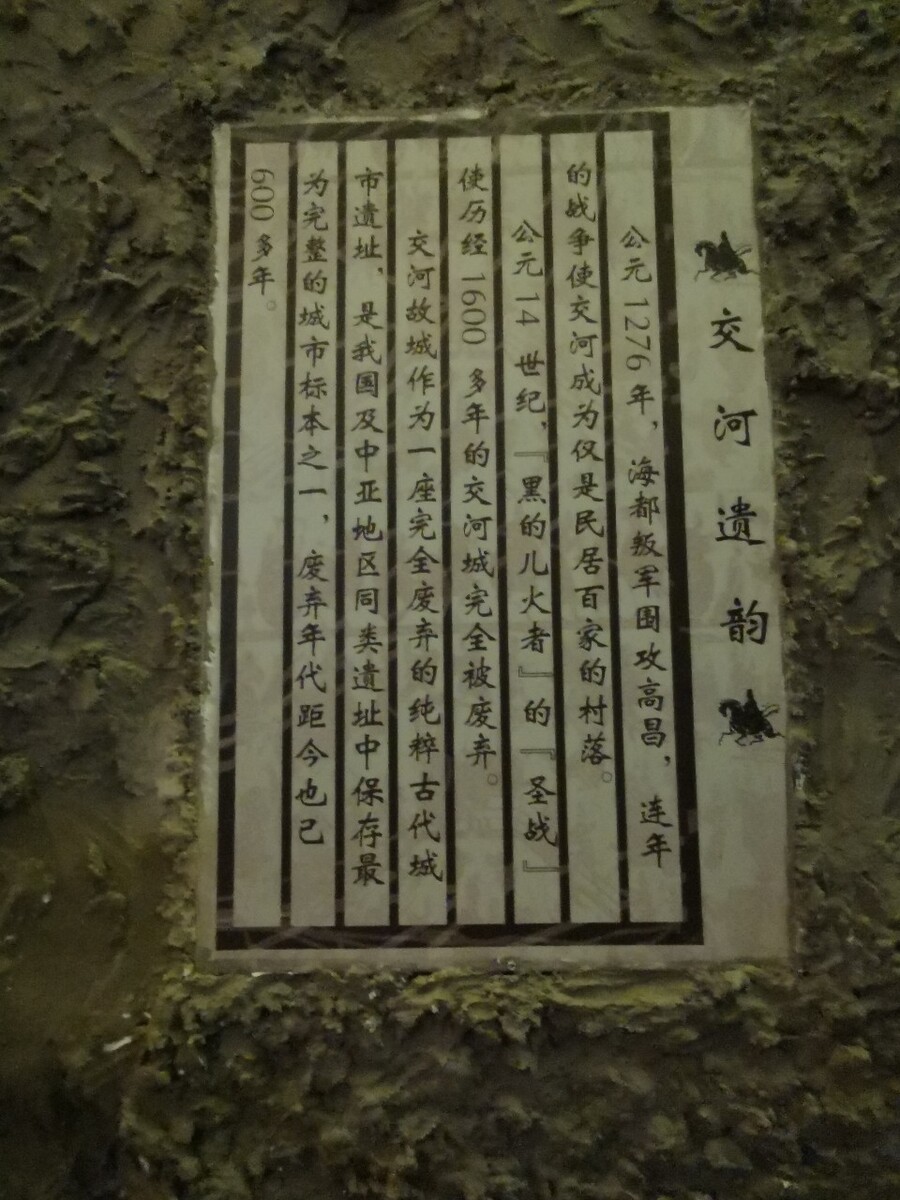 交河遗韵
公元1276年，海都叛军围攻高昌，连年
的战争使交河成为仅是民居百家的村落。
公元14世纪，『黑的儿火者』的『圣战』
使历经1600多年的交河城完全被废弃。
交河故城作为一座完全废弃的纯粹古代城
市遗址，是我国及中亚地区同类遗址中保存最
为完整的城市标本之一，废弃年代距今也已
600多年。